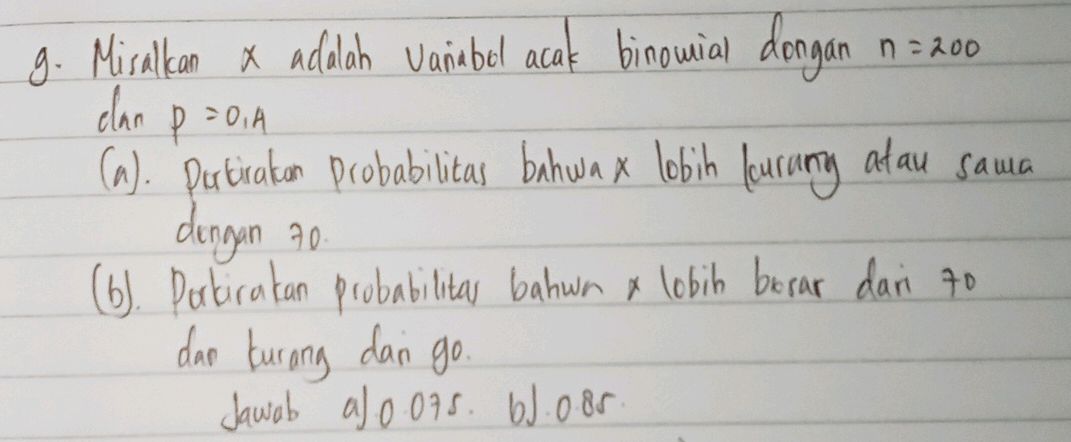 9. Misalkan x adalah Variabel acak binomial dengan n = 200
dan p = 0,4
(a). Perkirakan probabilitas bahwa x lebih kurang atau sama
dengan 70.
(b). Perkirakan probabilitas bahwa x lebih besar dari 70
dan kurang dari 90.
Jawab a) 0.075. b). 0.85.